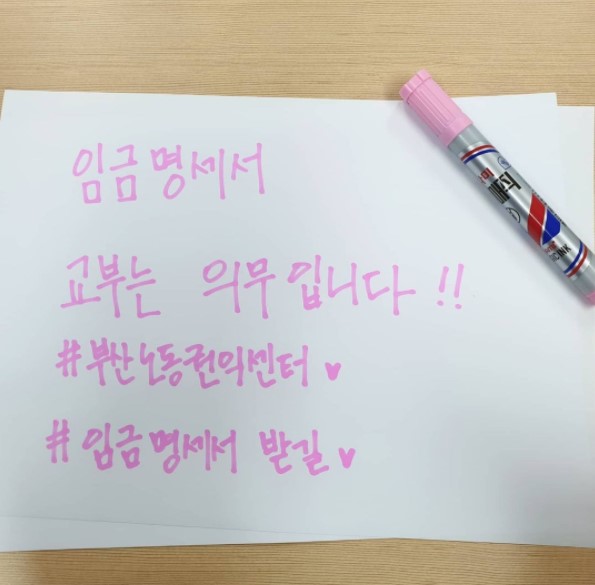 임금명세서
교부는 의무입니다!!
#부산노동권익센터♥
#임금명세서 받길♥